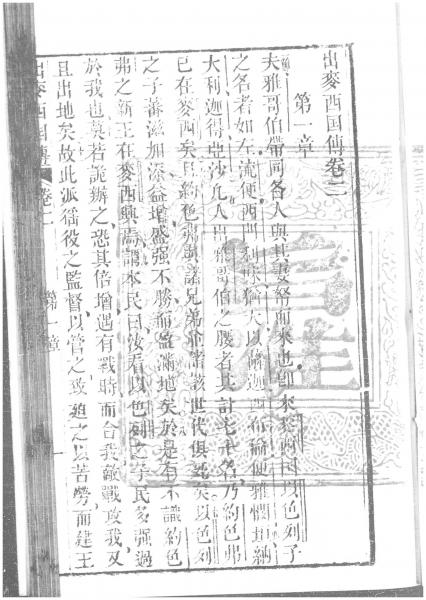 出麥西國傳卷二
第一章
夫雅哥伯帶同各人與其妻帑而來也卽來麥西國以色列子
之名者如左流便西門利未猶大以薩迦西布倫便雅憫但納
大利迦得亞沙凡人出雅哥伯之腰者共計七十名乃約色弗
已在麥西矣且約色弗與諸兄弟並諸該世代俱死矣以色列
之子蕃滋加添益增盛强不勝而盈滿地矣於是有不識約色
弗之新王在麥西興焉謂本民曰汝看以色列之子民多强過
於我也莫若詭辦之恐其倍增遇有戰時而合我敵戰攻我又
且出地矣故此派徭役之監督以管之致迫之以苦勞而建王
出麥西國傳 卷二 第一章 一